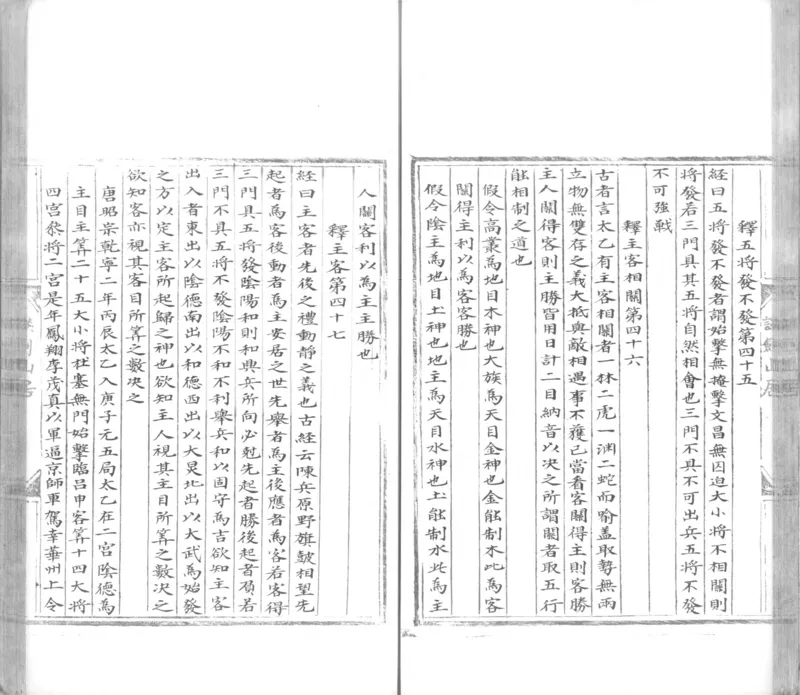 釋五將發不發第四十五
經曰五將發不發者謂始擊無掩擊文昌無囚迫大小將不相關則
將發若三門具其五將自然相會也三門不具不可出兵五將不發
不可強戰
釋主客相關第四十六
古者言太乙有主客相關者一林二虎一淵二蛇而喻盖取勢無兩
立物無雙存之義大抵與敵相遇事不獲已當看客關得主則客勝
主人關得客則主勝皆用日計二目納音以决之所謂關者取五行
能相制之道也
假令高叢為地目木神也大族為天目金神也金能制木此為客
關得主利以為客客勝也
假令陰主為地目土神也地主為天目水神也土能制水此為主
人關客利以為主主勝也
釋主客第四十七
經曰主客者先後之禮動静之義也古經云陳兵原野旗皷相望先
起者為客後動者為主安居之世先舉者為主後應者為客若客得
三門具五將發陰陽和則和興兵所向必尅先起者勝後起者負若
三門不具五將不發陰陽不和不利舉兵和以固守為吉欲知主客
出入者東出以陰德南出以和德西出以大炅北出以大武為始發
之方以定主客所起歸之神也欲知主人視其主目所筭之數决之
欲知客亦視其客目所筭之數决之
唐昭宗乾寧二年丙辰太乙入庚子元五局太乙在二宫陰德為
主目主筭二十五大小將杜塞無門始擊臨吕申客筭十四大將
四宫叅將二宫是年鳳翔李茂真以軍逼京師車駕幸華州上令